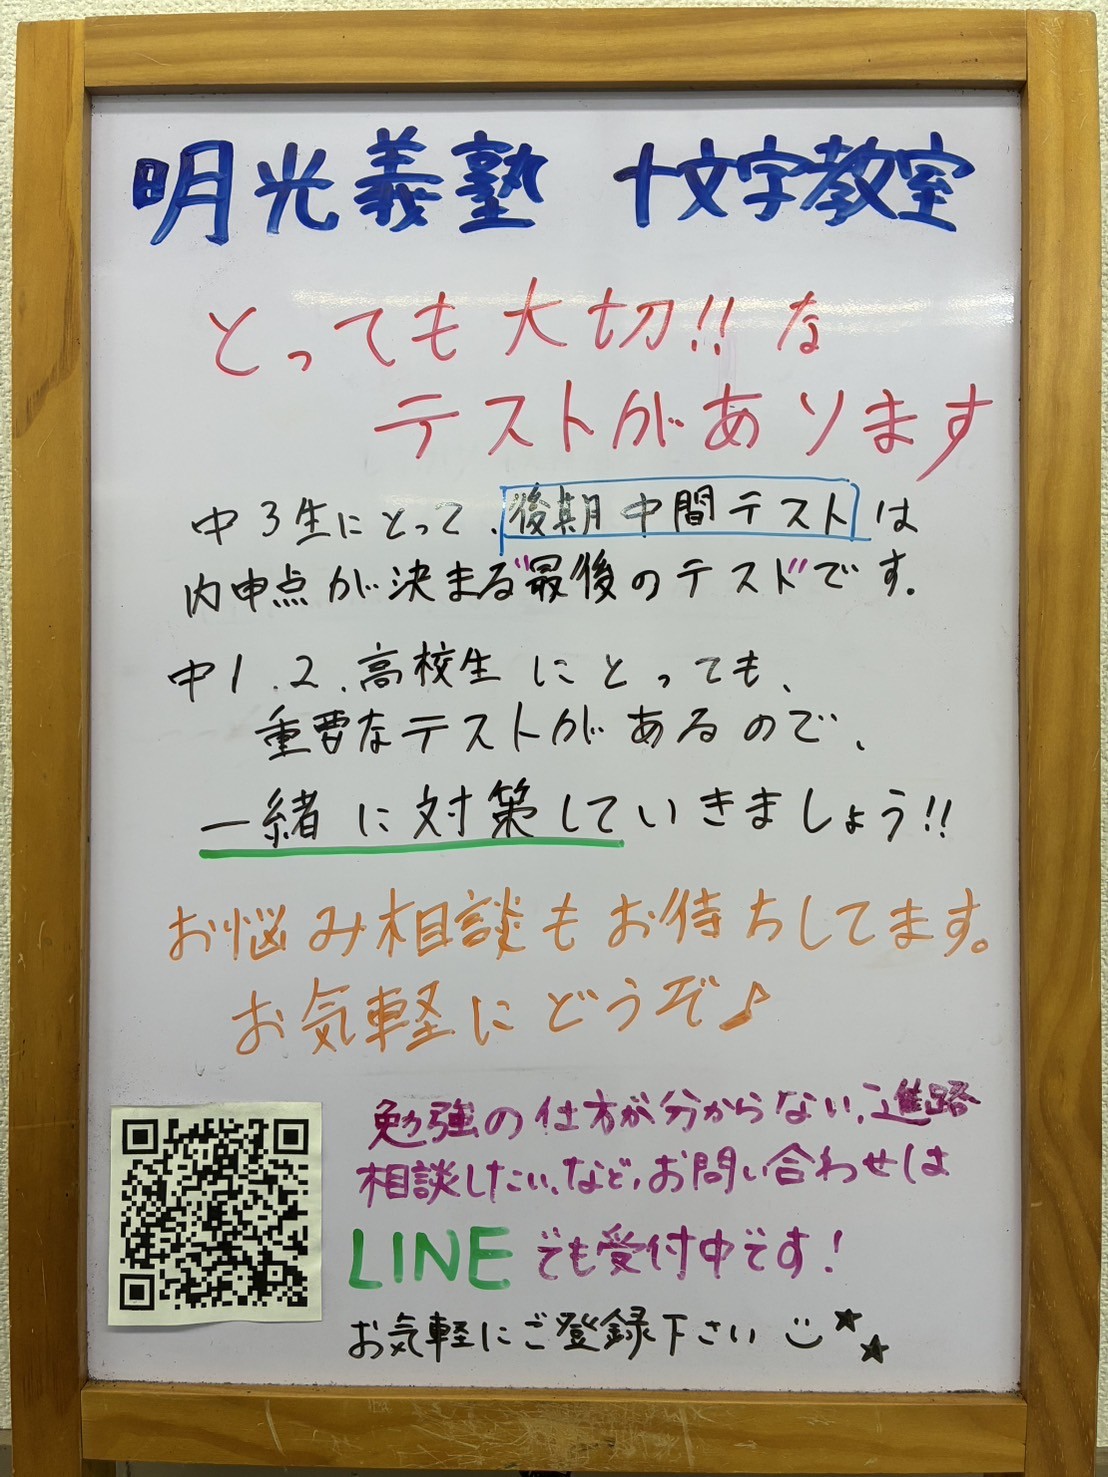 明光義塾 十文字教室
とっても大切!!な
テストがあります
中3生にとって、後期中間テストは
内申点が決まる"最後のテスト"です。
中1.2.高校生にとっても、
重要なテストがあるので、
一緒に対策していきましょう!!
お悩み相談もお待ちしてます。
お気軽にどうぞ♪
勉強の仕方が分からない、進路
相談したい、など、お問い合わせは
LINEでも受付中です!
お気軽にご登録下さい